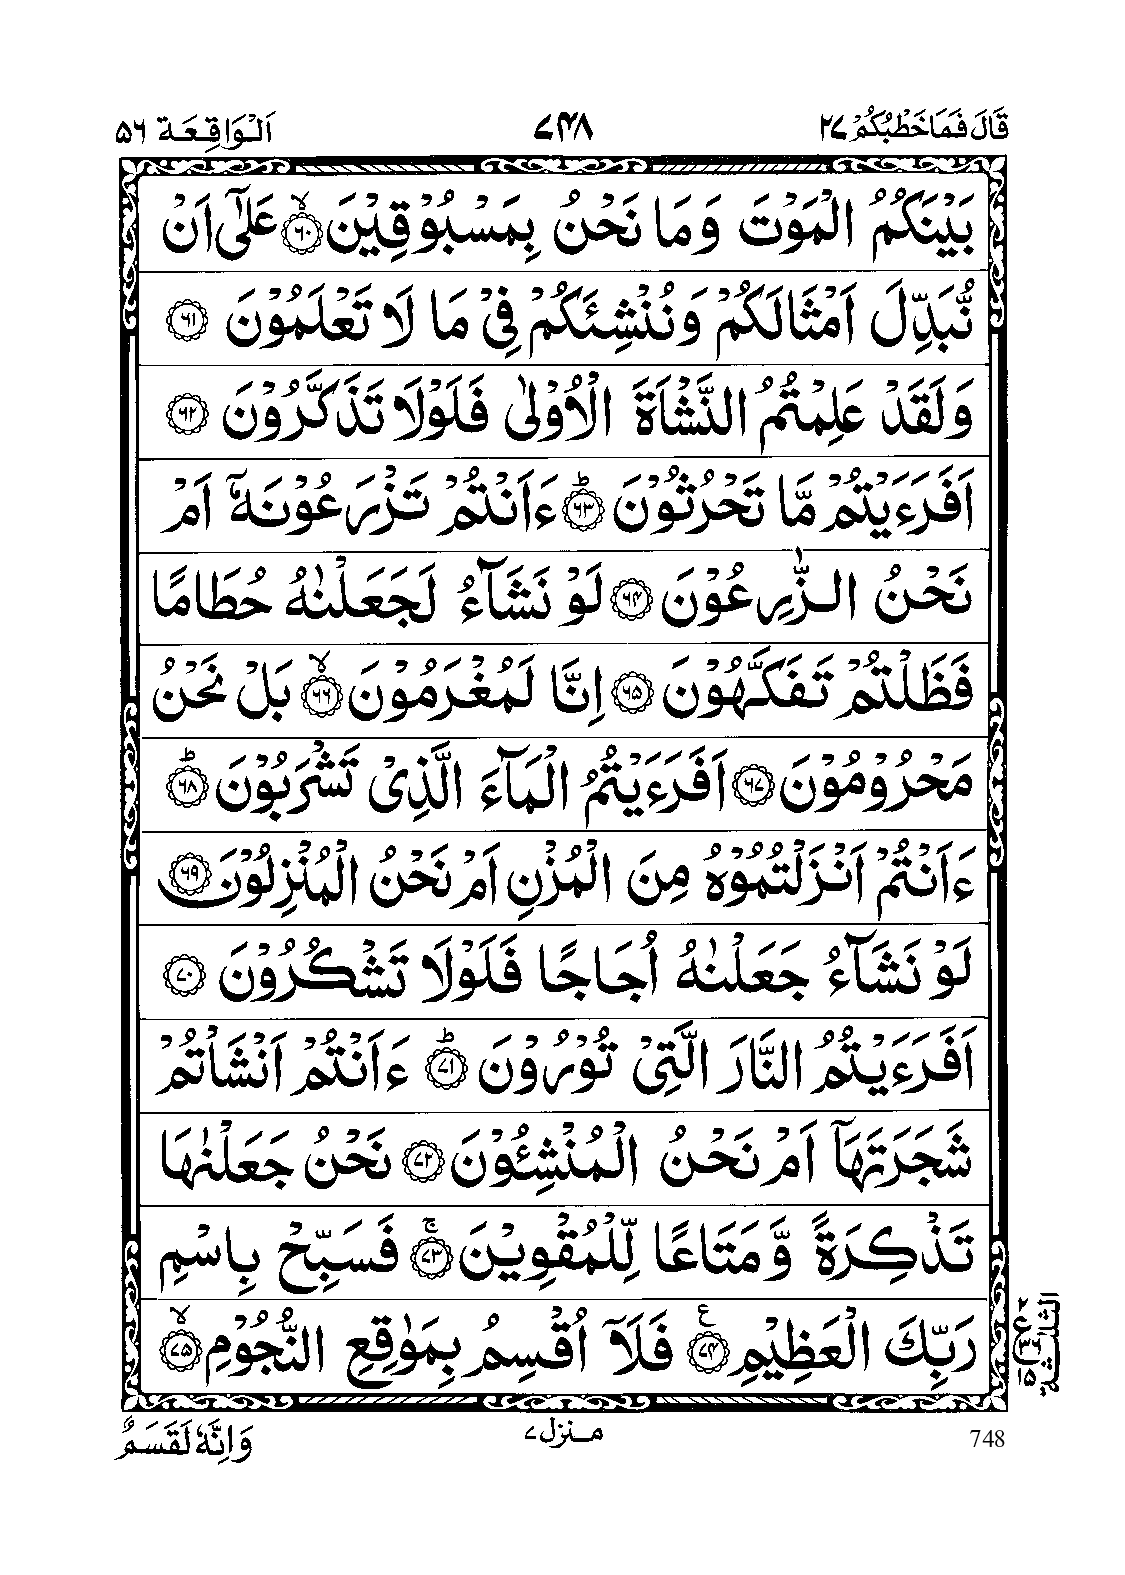 قَالَ فَمَا خَطْبُكُمْ ٢٧ ٧٤٨ اَلْوَاقِعَة ٥٦
بَيْنَكُمُ الْمَوْتَ وَمَا نَحْنُ بِمَسْبُوْقِيْنَ ۙ‏﴿۶۰﴾ عَلٰٓى اَنْ
نُّبَدِّلَ اَمْثَالَكُمْ وَنُنْشِئَكُمْ فِىْ مَا لَا تَعْلَمُوْنَ ﴿۶۱﴾
وَلَقَدْ عَلِمْتُمُ النَّشْاَةَ الْاُوْلٰى فَلَوْلَا تَذَكَّرُوْنَ ﴿۶۲﴾
اَفَرَءَيْتُمْ مَّا تَحْرُثُوْنَ ؕ‏﴿۶۳﴾ ءَاَنْتُمْ تَزْرَعُوْنَهٗۤ اَمْ
نَحْنُ الزّٰرِعُوْنَ ﴿۶۴﴾ لَوْ نَشَآءُ لَجَعَلْنٰهُ حُطَامًا
فَظَلْتُمْ تَفَكَّهُوْنَ ﴿۶۵﴾ اِنَّا لَمُغْرَمُوْنَ ۙ‏﴿۶۶﴾ بَلْ نَحْنُ
مَحْرُوْمُوْنَ ﴿۶۷﴾ اَفَرَءَيْتُمُ الْمَآءَ الَّذِىْ تَشْرَبُوْنَ ؕ‏﴿۶۸﴾
ءَاَنْتُمْ اَنْزَلْتُمُوْهُ مِنَ الْمُزْنِ اَمْ نَحْنُ الْمُنْزِلُوْنَ ﴿۶۹﴾
لَوْ نَشَآءُ جَعَلْنٰهُ اُجَاجًا فَلَوْلَا تَشْكُرُوْنَ ﴿۷۰﴾
اَفَرَءَيْتُمُ النَّارَ الَّتِىْ تُوْرُوْنَ ؕ‏﴿۷۱﴾ ءَاَنْتُمْ اَنْشَاْتُمْ
شَجَرَتَهَاۤ اَمْ نَحْنُ الْمُنْشِئُوْنَ ﴿۷۲﴾ نَحْنُ جَعَلْنٰهَا
تَذْكِرَةً وَّمَتَاعًا لِّلْمُقْوِيْنَ ۚ‏﴿۷۳﴾ فَسَبِّحْ بِاسْمِ
رَبِّكَ الْعَظِيْمِ ﴿۷۴﴾ ع فَلَاۤ اُقْسِمُ بِمَوٰقِعِ النُّجُوْمِ ۙ‏﴿۷۵﴾
الثلثة
٢ ع ٣٦ ١٥
748 منزل ٧ وَاِنَّهٗ لَقَسَمٌ